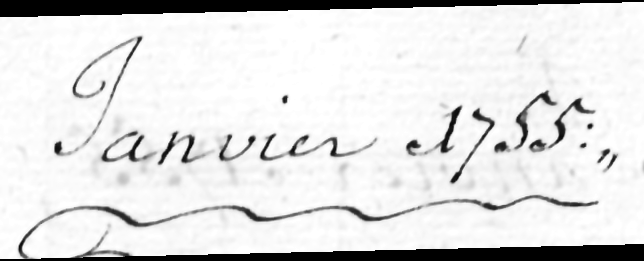 Janvier 1755:,,